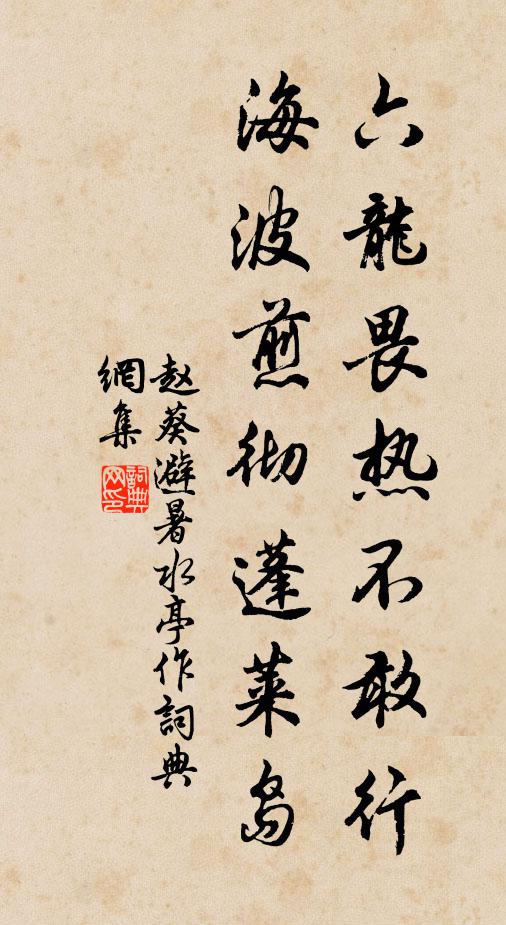 六龍畏热不敢行
海波煎彻蓬莱岛
赵葵避暑水亭作詞典
網集
詞典
网印